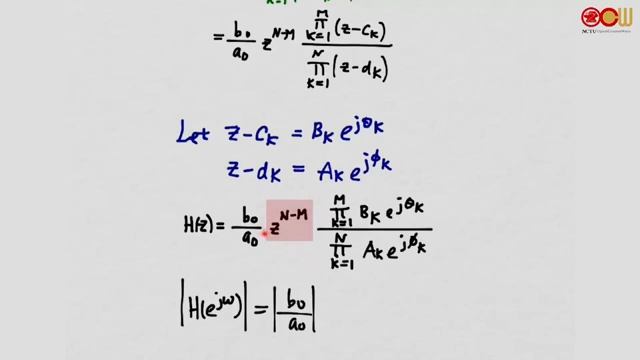 = b₀/a₀ z^{N-M} ∏_{k=1}^{M} (z-C_k) / ∏_{k=1}^{N} (z-d_k)
NCTU OpenCourseWare
Let z-C_k = B_k e^{jθ_k}
z-d_k = A_k e^{jϕ_k}
H(z) = b₀/a₀ z^{N-M} ∏_{k=1}^{M} B_k e^{jθ_k} / ∏_{k=1}^{N} A_k e^{jϕ_k}
|H(e^{jω})| = |b₀/a₀|